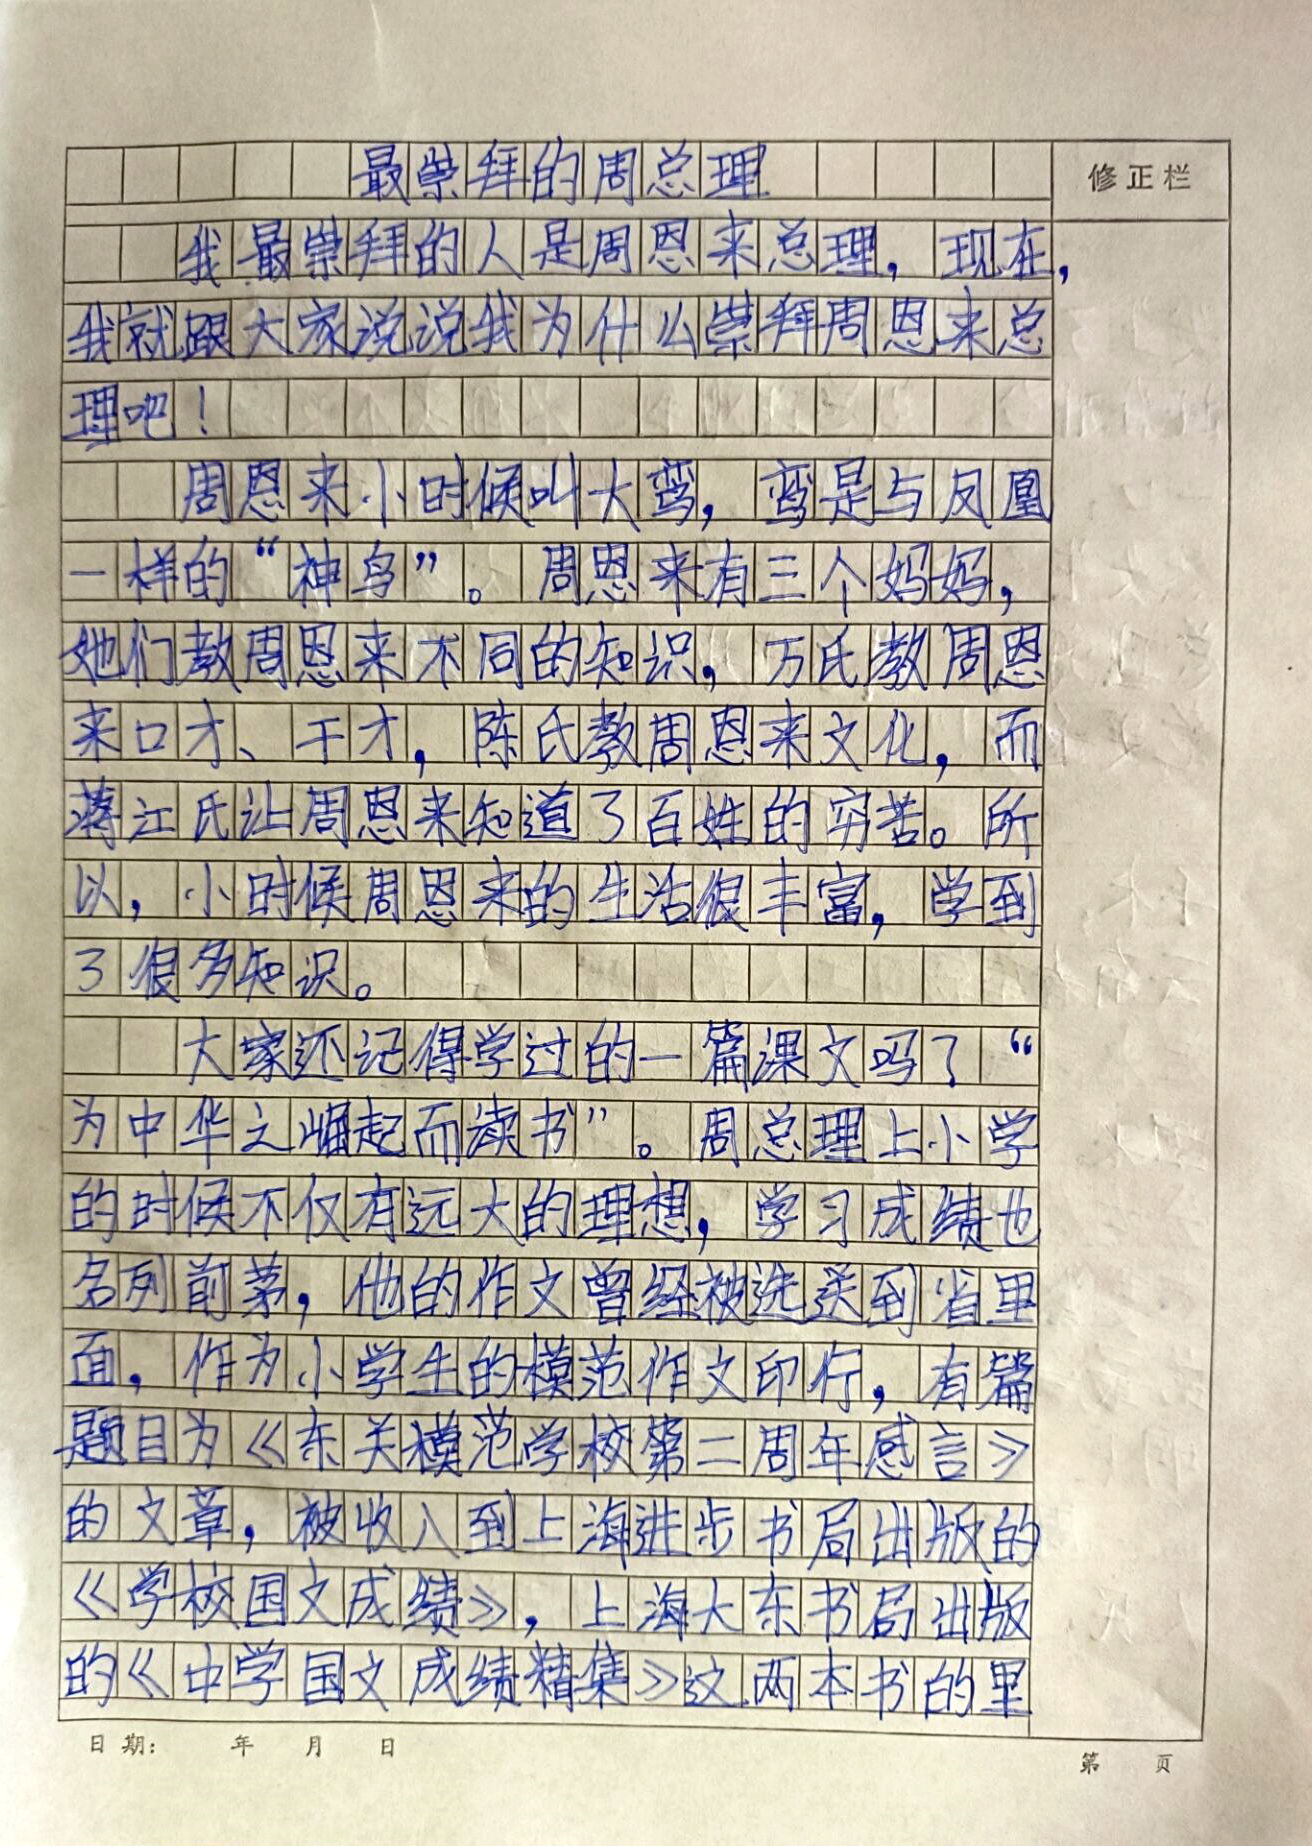 最崇拜的周总理
修正栏
我最崇拜的人是周恩来总理，现在，
我就跟大家说说我为什么崇拜周恩来总
理吧！
周恩来小时候叫大鸾，鸾是与凤凰
一样的“神鸟”。周恩来有三个妈妈，
她们教周恩来不同的知识，万氏教周恩
来口才、干才，陈氏教周恩来文化，而
蒋江氏让周恩来知道了百姓的穷苦。所
以，小时候周恩来的生活很丰富，学到
了很多知识。
大家还记得学过的一篇课文吗？“
为中华之崛起而读书”。周总理上小学
的时候不仅有远大的理想，学习成绩也
名列前茅，他的作文曾经被选送到省里
面，作为小学生的模范作文印行，有篇
题目为《东关模范学校第二周年感言》
的文章，被收入到上海进步书局出版的
《学校国文成绩》，上海大东书局出版
的《中学国文成绩精集》这两本书的里
日期： 年 月 日
第 页